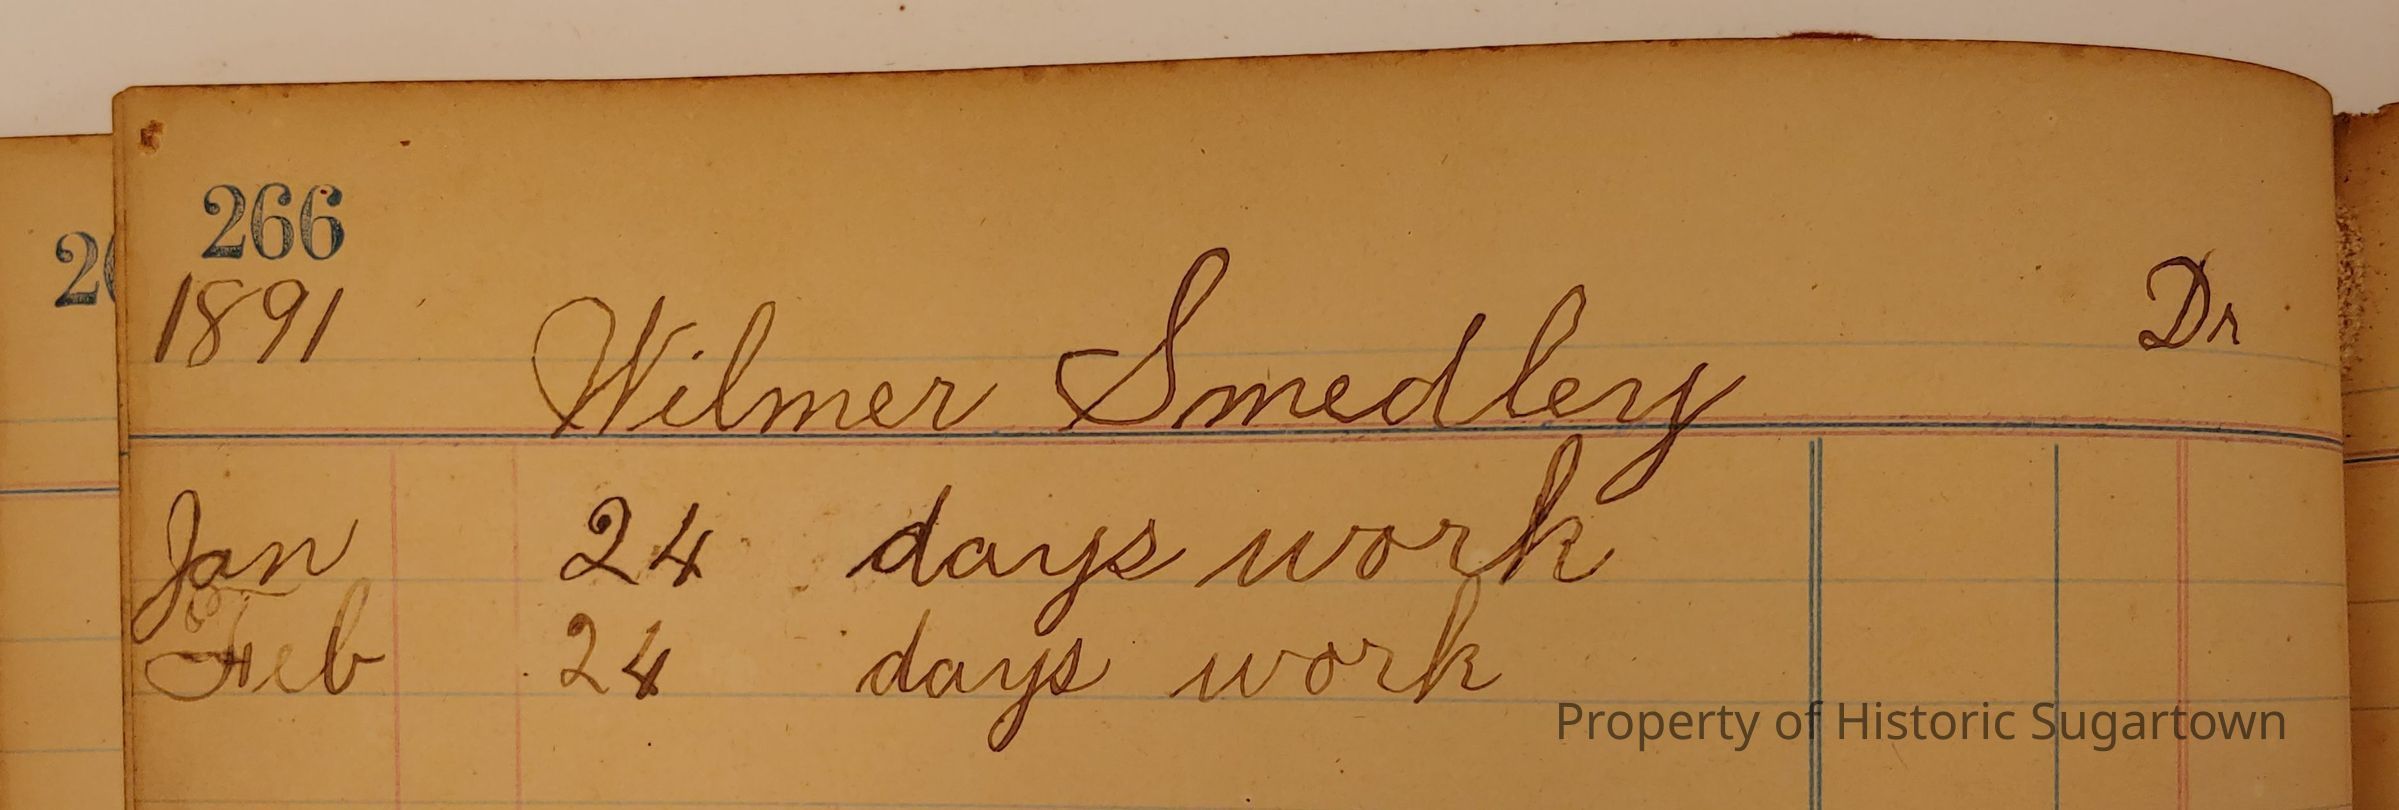 266
1891
Wilmer Smedley Dr
Jan 24 days work
Feb 24 days work
Property of Historic Sugartown